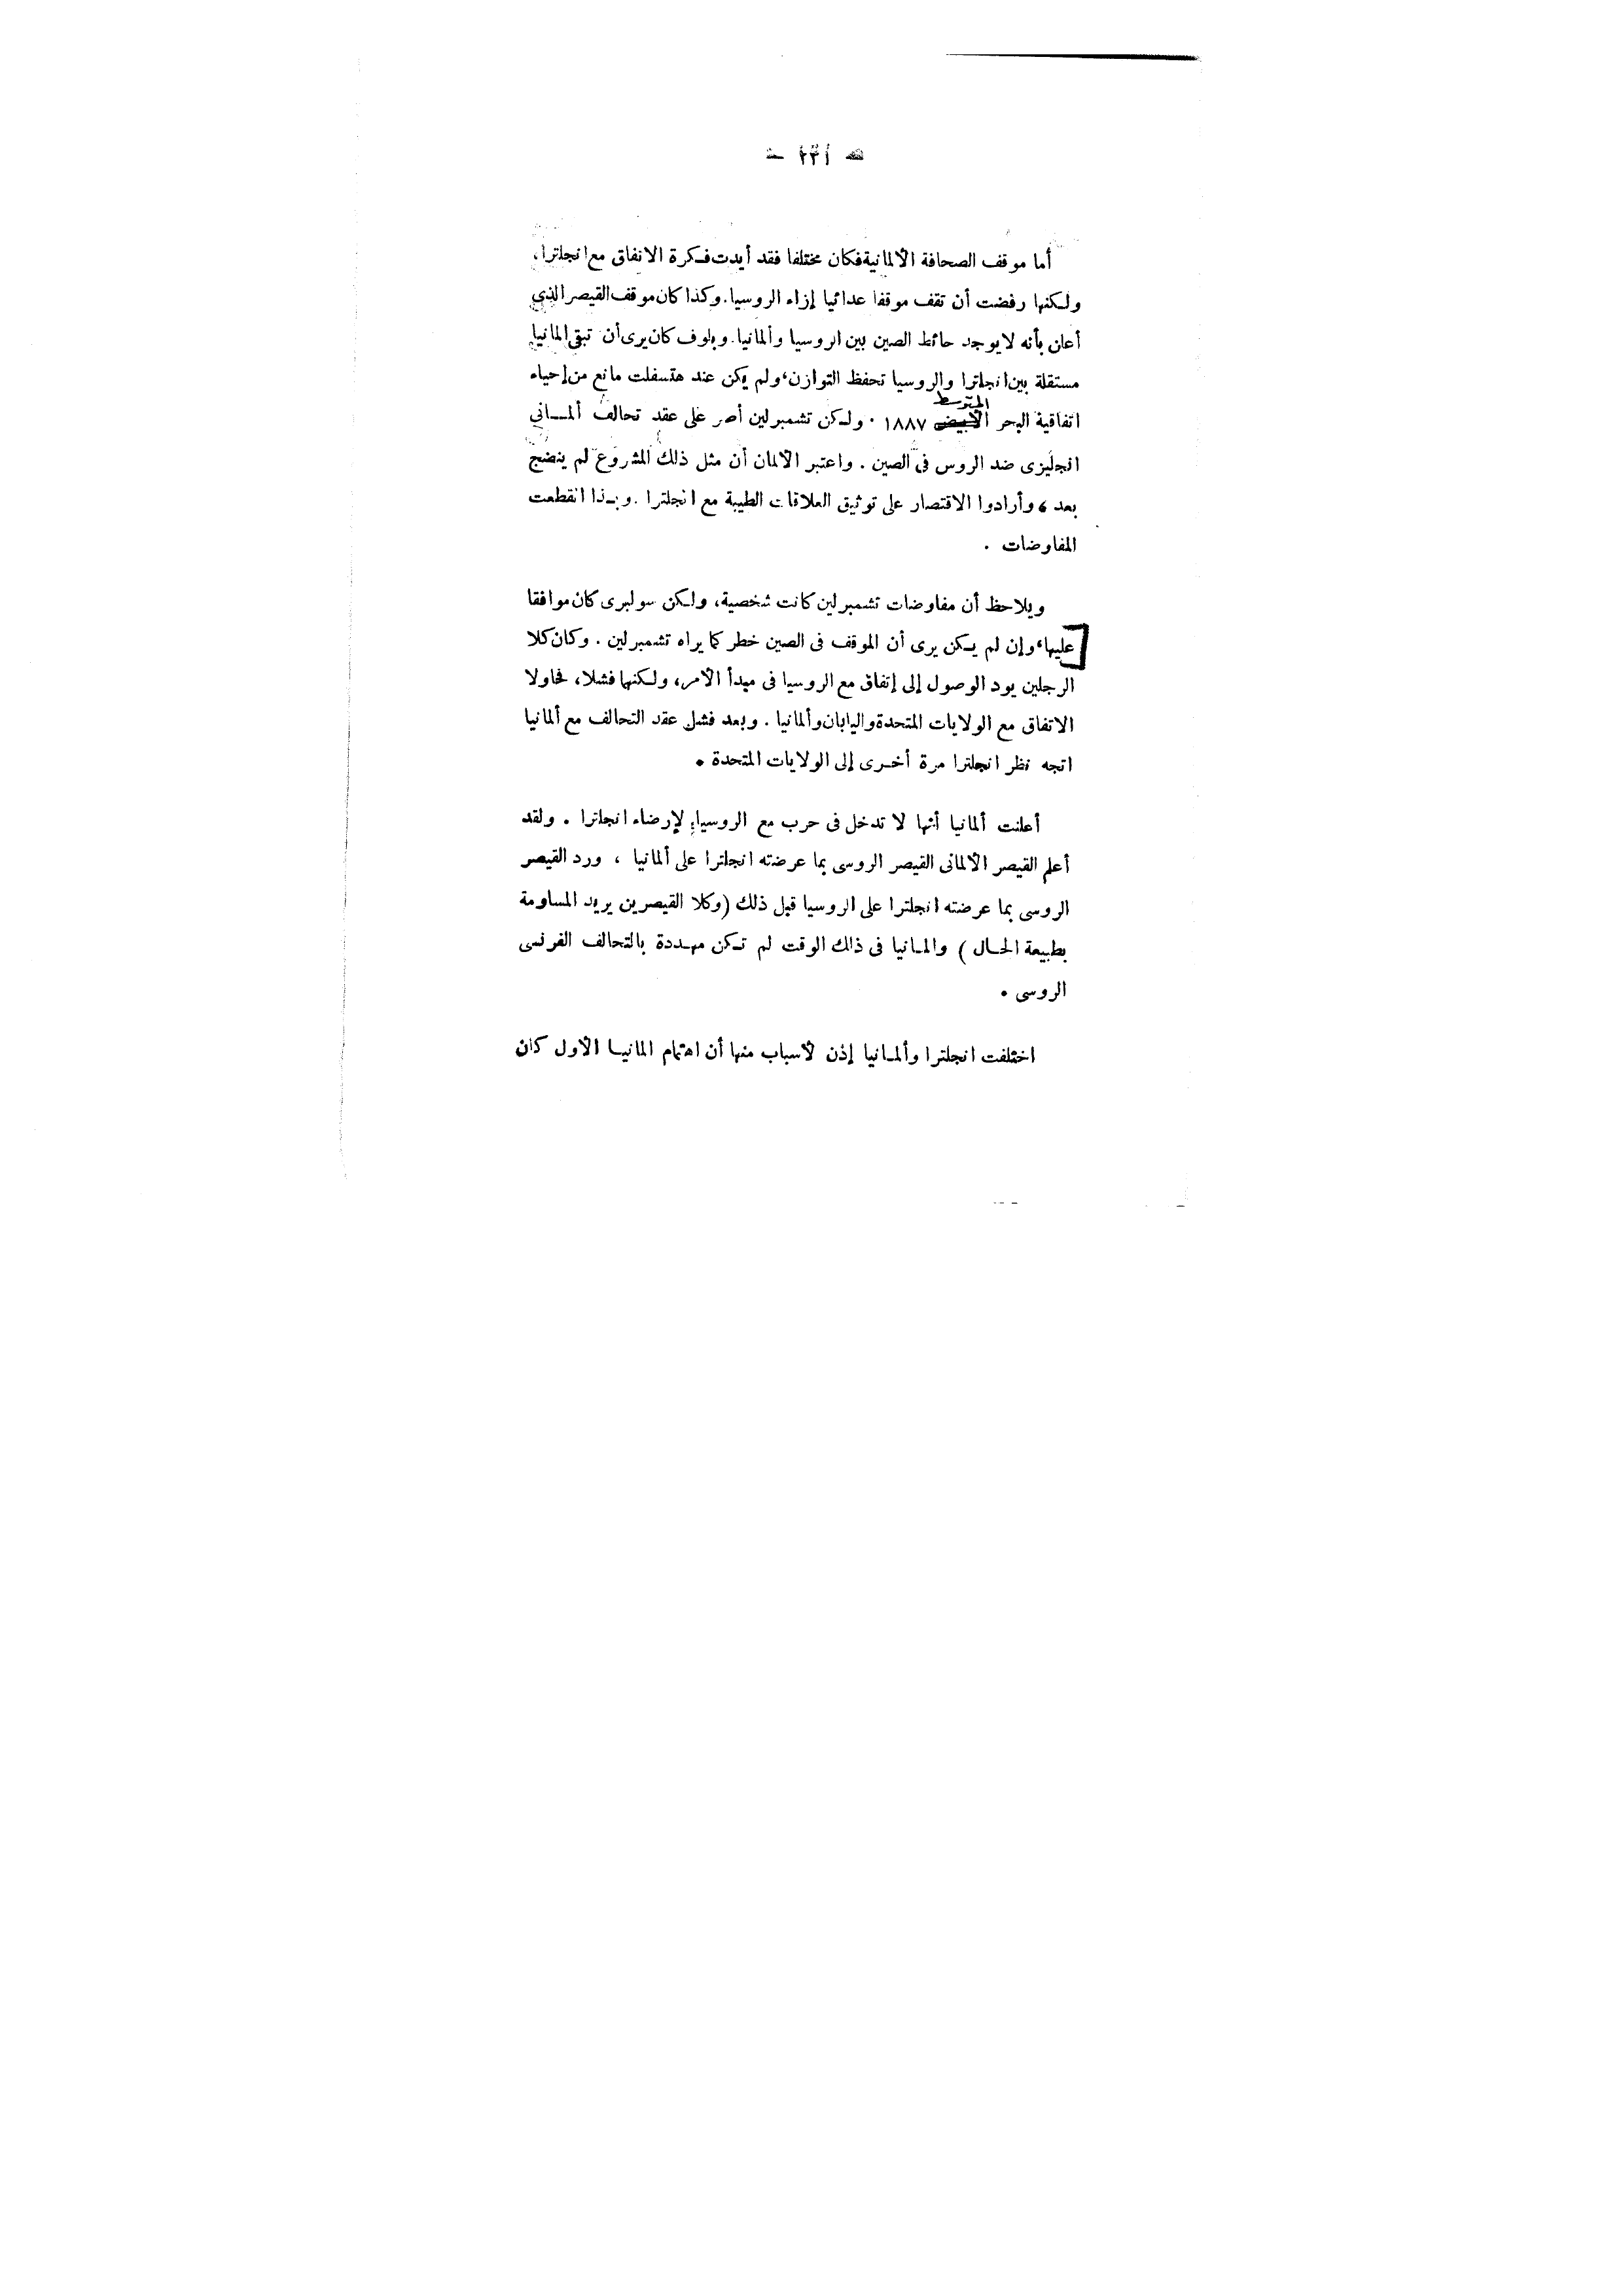 أما موقف الصحافة الألمانية فكان مختلفا فقد أيدت فكرة الاتفاق مع انجلترا،
ولكنها رفضت أن تقف موقفا عدائيا إزاء الروسيا. وكذا كان موقف القيصر الذي
أعلن بأنه لا يوجد حائط الصين بين الروسيا وألمانيا. وبلوف كان يرى أن تبقى المانيا
مستقلة بين انجلترا والروسيا تحفظ التوازن، ولم يكن عند هتسفلت مانع من إحياء
المتوسط
اتفاقية البحر الأبيض ١٨٨٧ . ولكن تشمبرلين أصر على عقد تحالف ألماني
انجليزى ضد الروس فى الصين . واعتبر الألمان أن مثل ذلك المشروع لم ينضج
بعد ، وأرادوا الاقتصار على توثيق العلاقات الطيبة مع انجلترا . وبذا انقطعت
المفاوضات .
ويلاحظ أن مفاوضات تشمبرلين كانت شخصية، ولكن سولبرى كان موافقا
عليها، وإن لم يكن يرى أن الموقف فى الصين خطر كما يراه تشمبرلين . وكان كلا
الرجلين يود الوصول إلى إتفاق مع الروسيا فى مبدأ الأمر، ولكنهما فشلا، فحاولا
الاتفاق مع الولايات المتحدة واليابان وألمانيا . وبعد فشل عقد التحالف مع ألمانيا
اتجه نظر انجلترا مرة أخرى إلى الولايات المتحدة .
أعلنت ألمانيا أنها لا تدخل فى حرب مع الروسيا لإرضاء انجلترا . ولقد
أعلم القيصر الألمانى القيصر الروسى بما عرضته انجلترا على ألمانيا ، ورد القيصر
الروسى بما عرضته انجلترا على الروسيا قبل ذلك (وكلا القيصرين يريد المساومة
بطبيعة الحال ) والمانيا فى ذلك الوقت لم تكن مهددة بالتحالف الفرنسى
الروسى .
اختلفت انجلترا وألمانيا إذن لأسباب منها أن اهتمام المانيا الأول كان